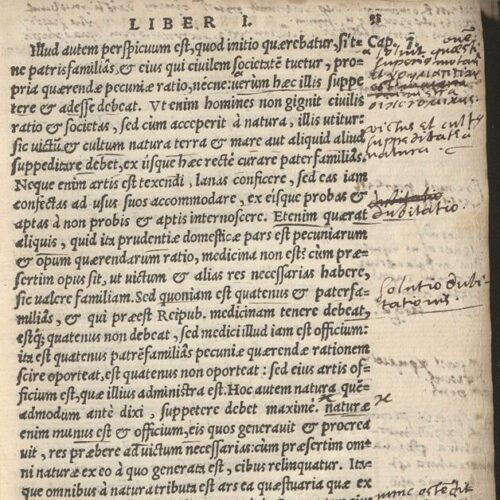 LIBER I.
Illud autem perspicuum est, quod initio quærebatur, sit ne
ne patrisfamiliâs, & eius qui civilem societatē tuetur, pro-
pria quærendæ pecuniæ ratio, nécne: uerùm hæc illis suppe
tere & adesse debeat. Vt enim homines non gignit civilis
ratio & societas, sed cùm acceperit à natura, illis utitur:
sic victū & cultum natura terra & mare aut aliquid aliud
suppeditare debet, ex iisque hæc rectè curare paterfamiliâs.
Neque enim artis est texendi, lanas conficere, sed eas iam
confectas ad usus suos accommodare, ex eisque probas &
aptas à non probis & aptis internoscere. Etenim quærat
aliquis, quid ita prudentiæ domesticæ pars est pecuniarum
& opum quærendarum ratio, medicina non est? cùm præ-
sertim opus sit, ut victum & alias res necessarias habere,
sic valere familiam. Sed quoniam est quatenus & paterfa-
miliâs, & qui præest Reipub. medicinam tenere debeat,
estq́; quatenus non debeat, sed medici illud iam est officium:
ita est quatenus patrēfamiliâs pecuniæ quærendæ rationem
scire oporteat, est quatenus non oporteat: sed eius artis of-
ficium est, quæ illius administra est. Hoc autem natura quē-
admodum antè dixi, suppetere debet maximè. naturæ
enim munus est & officium, eis quos generavit & procrea
vit, res præbere ad victum necessarias: cùm præsertim om-
ni naturæ ex eo à quo generata est, cibus relinquatur. Ita-
que omnibus à natura tributa est ars ea quæstuaria quæ ex
Cap. 7.
victus et cultus
suppeditatio
natura.
dubitatio
dubitatio
solutio dubi-
tationis.
nunc ostēdit